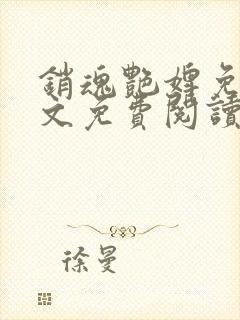 銷魂艷婢免
文免費閱讀
徐曼